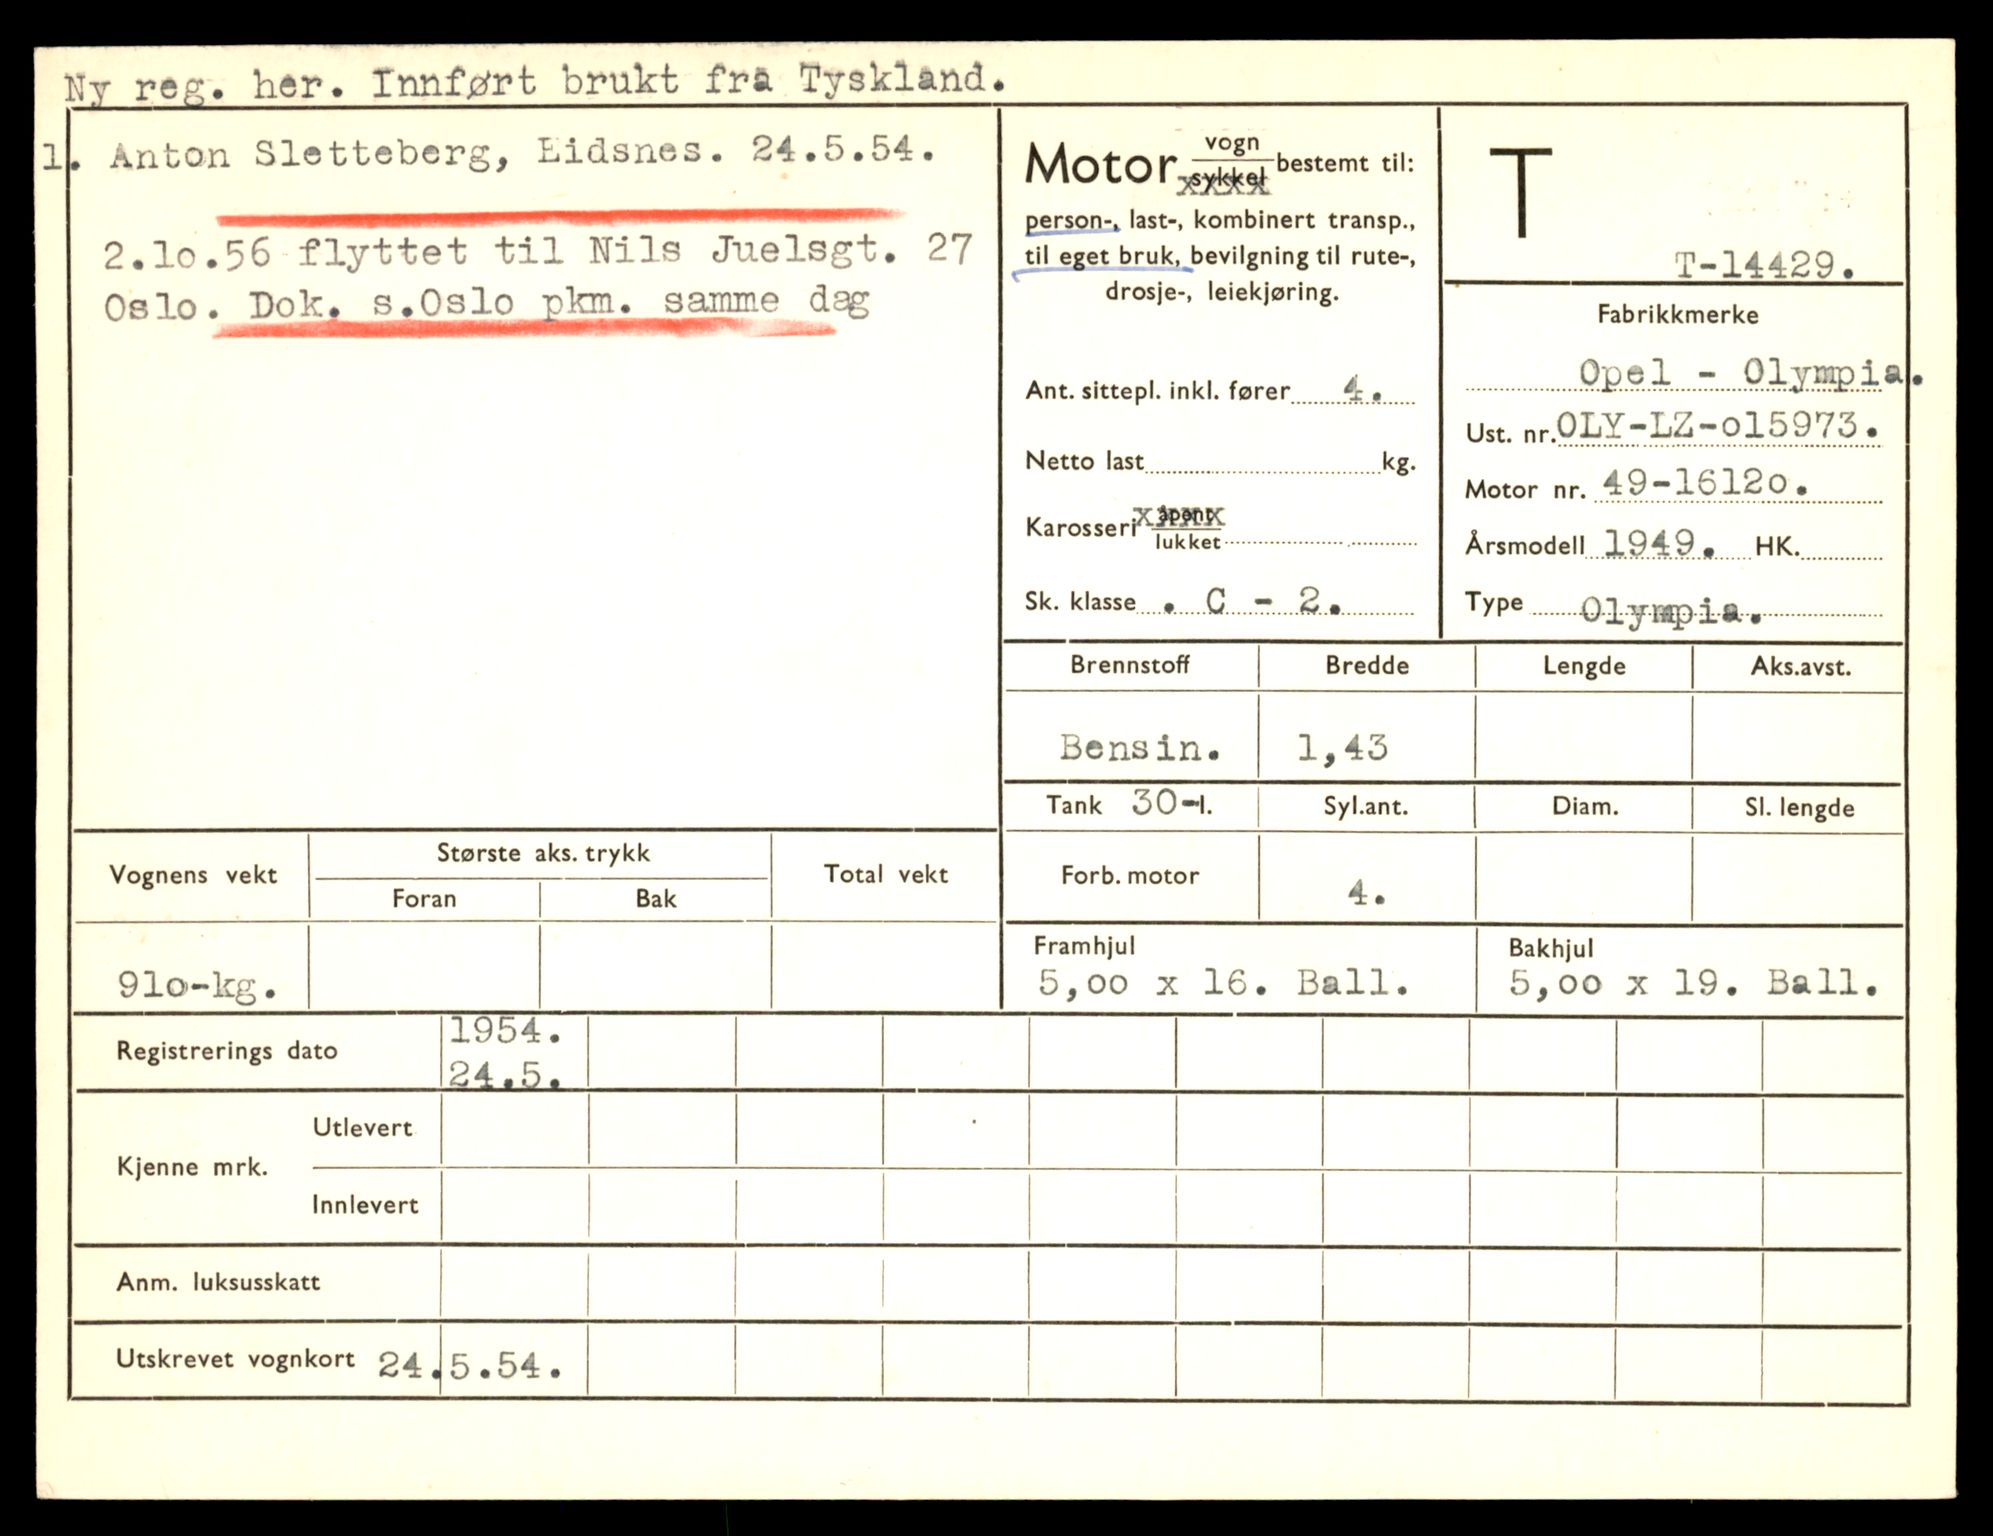 Ny reg. her. Innført brukt fra Tyskland.
1. Anton Sletteberg, Eidsnes. 24.5.54.
2.1o.56 flyttet til Nils Juelsgt. 27
Oslo. Dok. s.Oslo pkm. samme dag
Motor vogn bestemt til:
sykkel
xxxx
person-, last-, kombinert transp.,
til eget bruk, bevilgning til rute-,
drosje-, leiekjøring.
Ant. sittepl. inkl. fører 4.
Netto last kg.
Karosseri åpent
xxxx
lukket
Sk. klasse . C - 2.
T
T-14429.
Fabrikkmerke
Opel - Olympia.
Ust. nr. OLY-LZ-o15973.
Motor nr. 49-1612o.
Årsmodell 1949. HK.
Type Olympia.
Brennstoff Bredde Lengde Aks.avst.
Bensin. 1,43
Tank 30-l. Syl.ant. Diam. Sl. lengde
Forb. motor 4.
Framhjul Bakhjul
5,oo x 16. Ball. 5,oo x 19. Ball.
Vognens vekt Største aks. trykk Total vekt
Foran Bak
91o-kg.
Registrerings dato 1954.
24.5.
Kjenne mrk. Utlevert
Innlevert
Anm. luksusskatt
Utskrevet vognkort 24.5.54.